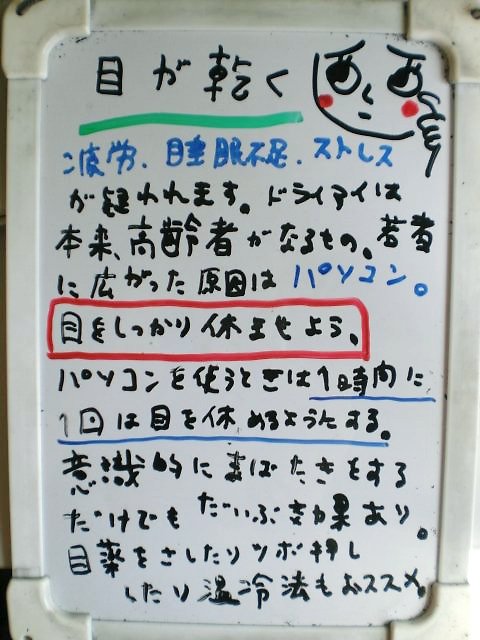 目が乾く
疲労、睡眠不足、ストレス
が疑われます。ドライアイは
本来、高齢者がなるもの。若者
に広がった原因はパソコン。
目をしっかり休ませよう。
パソコンを使うときは1時間に
1回は目を休めるようにする。
意識的にまばたきをする
だけでもだいぶ効果あり。
目薬をさしたりツボ押し
したり温冷法もおススメ。